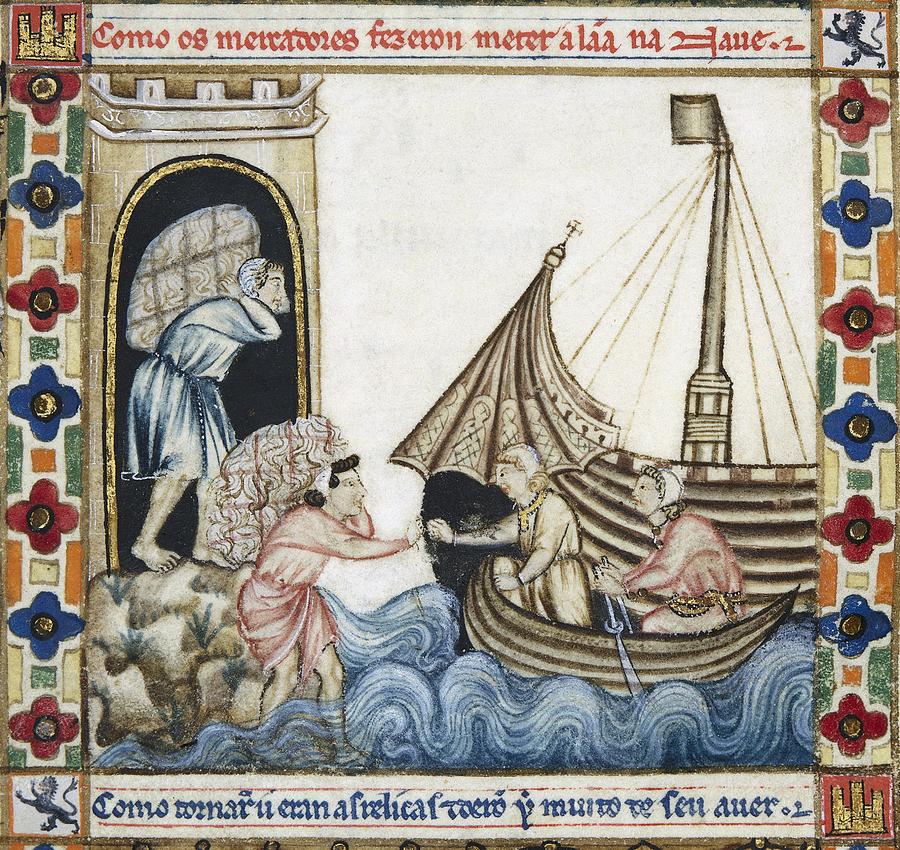 Como os mercadores fezeron meter a lãa na Naue.
Como tornar̃ u eran as relicas ⁊ derõ ẏ muito de seu auer.